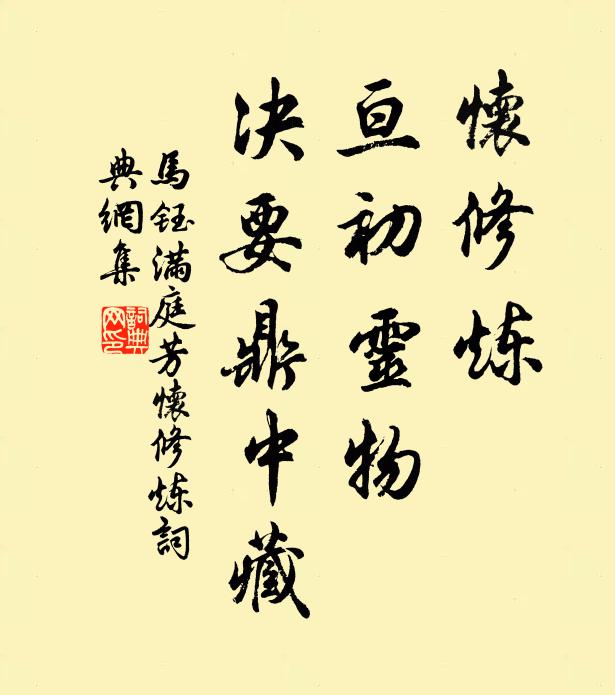 懷修炼
亘初靈物
决要鼎中藏
馬鈺滿庭芳懷修炼詞
典網集
詞典网印